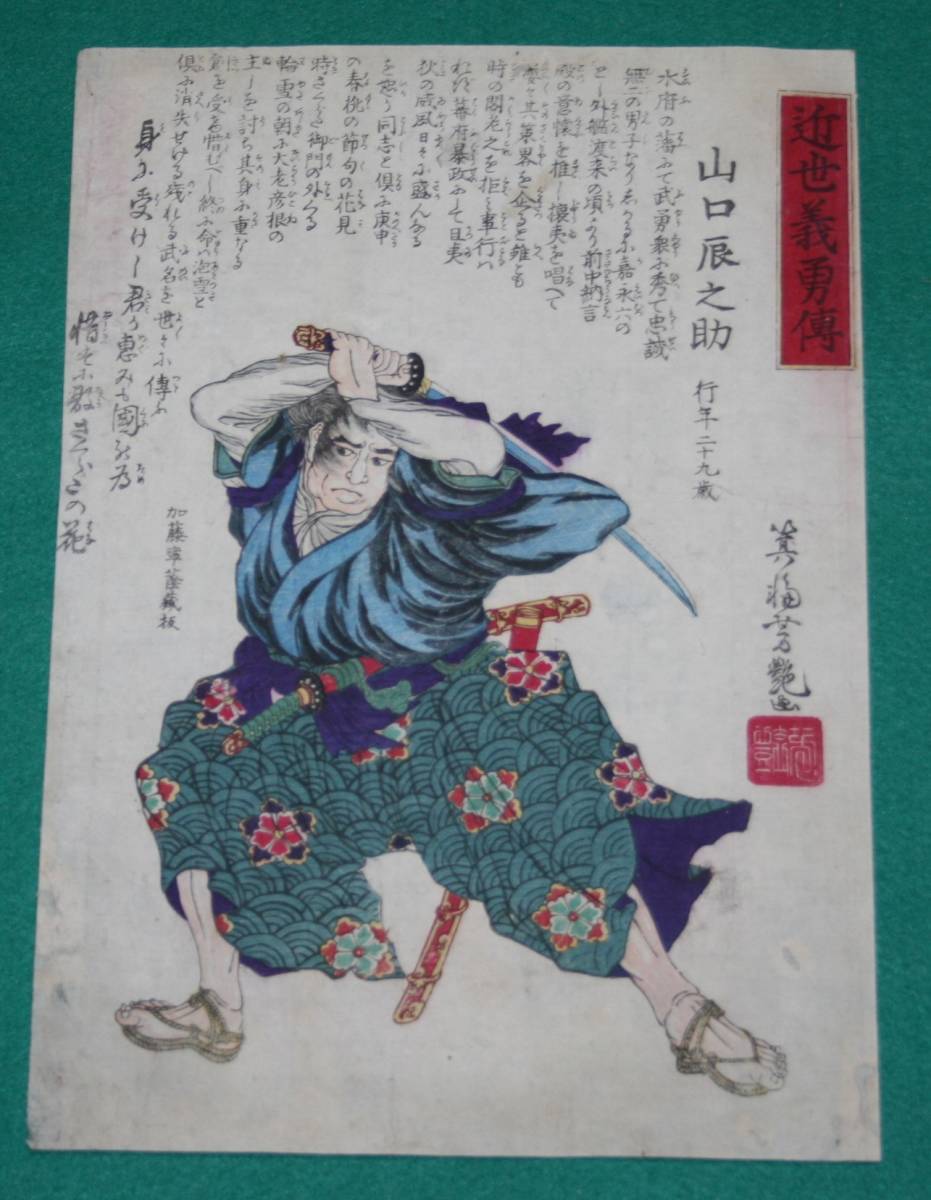 近世義勇傳
山口辰之助
行年二十九歳
水府の藩にて武勇衆に秀て忠誠
無二の男子なりしかるに嘉永六の
とし外艦寇来の頃より前中納言
殿の意懐を推し攘夷を唱へて
其策畧を企ると雖も
時の閣老之を拒み事行は
れず幕府暴政にして日夷
狄の威風日々に盛んなる
を忿り同志と倶に庚申
の春桃の節句の花見
時さくらだ御門の外なる
輪雪の朝に大老彦根の
主しを討ち其身に重なる
倉を受名惜むべし終に命は泡雪と
倶に消失せける残れる武名を世々に傳ふ
身に受けし君が恵みも國の為
惜せに散さくらこの花
一英齋芳艶画
加藤
蔵板